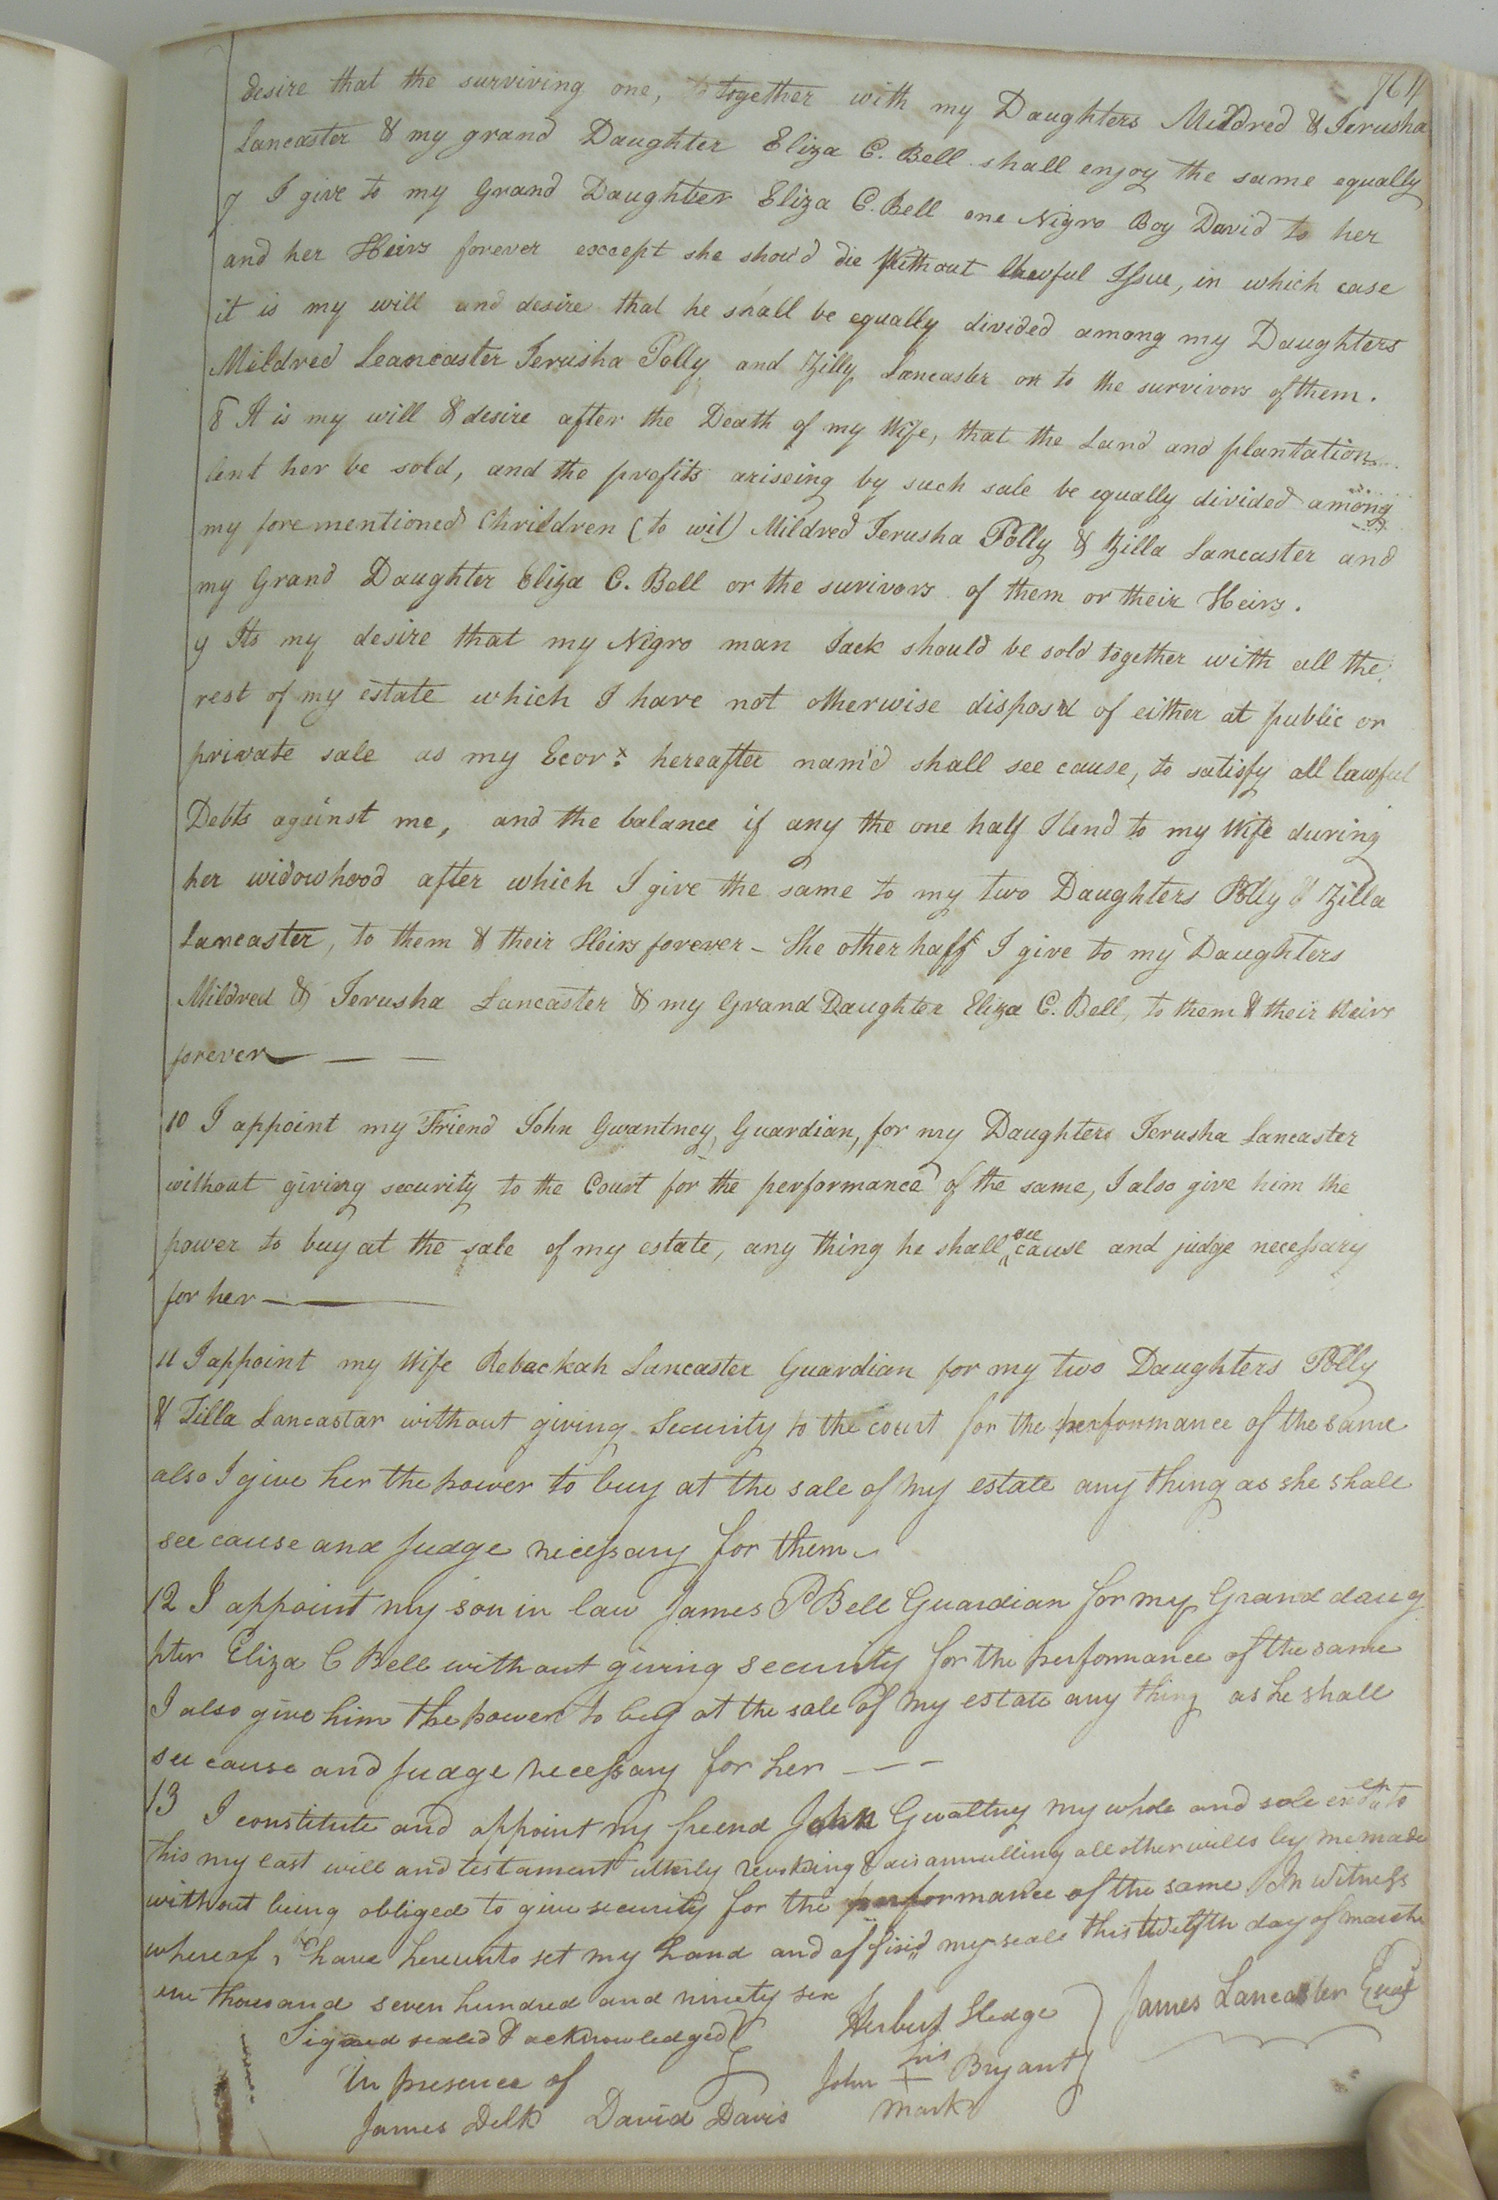 764
desire that the surviving one, together with my Daughters Mildred & Jerusha
Lancaster & my grand Daughter Eliza C. Bell shall enjoy the same equally
7 I give to my Grand Daughter Eliza C. Bell one Nigro Boy David to her
and her Heirs forever except she shou'd die Without Lawful Issue, in which case
it is my will and desire that he shall be equally divided among my Daughters
Mildred Leancaster Jerusha Polly and Zilly Lancaster or to the survivors of them.
8 It is my will & desire after the Death of my Wife, that the Land and plantation
lent her be sold, and the profits ariseing by such sale be equally divided among
my forementioned Chrildren (to wit) Mildred Jerusha Polly & Zilla Lancaster and
my Grand Daughter Eliza C. Bell or the surivors of them or their Heirs.
9 Its my desire that my Nigro man Jack should be sold together with all the
rest of my estate which I have not otherwise disposd of either at public or
private sale as my Ecorx: hereafter nam'd shall see cause, to satisfy all lawful
Debts against me, and the balance if any the one half I lend to my Wife during
her widowhood after which I give the same to my two Daughters Polly & Zilla
Lancaster, to them & their Heirs forever - The other half I give to my Daughters
Mildred & Jerusha Lancaster & my Grand Daughter Eliza C. Bell, to them & their Heirs
forever
10 I appoint my Friend John Gwantney, Guardian, for my Daughters Jerusha Lancaster
without giving security to the Court for the performance of the same, I also give him the
power to buy at the sale of my estate, any thing he shall see cause and judge necessary
for her
11 I appoint my Wife Rebackah Lancaster Guardian for my two Daughters Polly
& Zilla Lancastar without giving Security to the court for the performance of the same
also I give her the power to buy at the sale of my estate any thing as she shall
see cause and Judge necessary for them
12 I appoint my son in law James P Bell Guardian for my Grand daug
hter Eliza C Bell without giving security for the performance of the same
I also give him the power to buy at the sale of my estate any thing as he shall
see cause and Judge necessary for her
13 I constitute and appoint my freend John Gwaltney my whole and sole to
this my last will and testament utterly revokeing & disannulling all other wills by me made
without being obliged to give security for the performance of the same In Witness
whereof I have hereunto set my hand and affixed my seale this twelfth day of march
one thousand seven hundred and ninety six
Signed sealed & acknowledged Herbert Hedge James Lancaster Seal
in presence of John his Bryant
James Delk David Davis mark